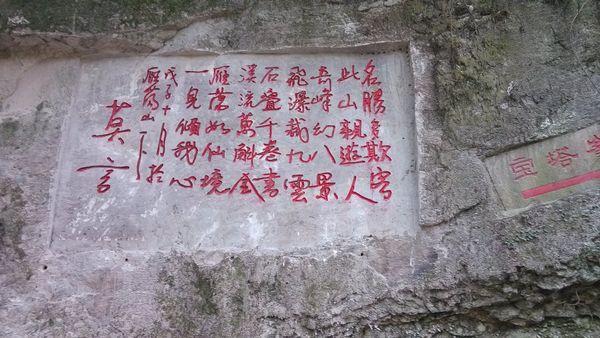 名勝多欺客
此山親遊人
奇峰幻八景
飛瀑裁九雲
石疊千卷書
溪流萬斛金
雁蕩如仙境
一見傾我心
戊子十月於
雁蕩山
莫言
宝塔